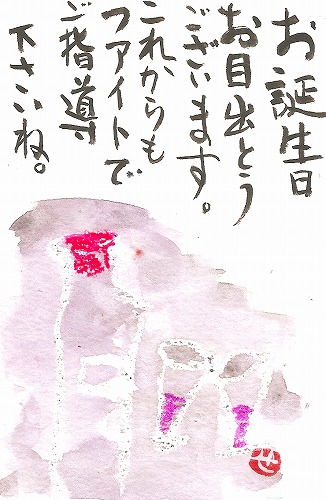 お誕生日
お目出とう
ございます。
これからも
ファイトで
ご指導
下さいね。
せ